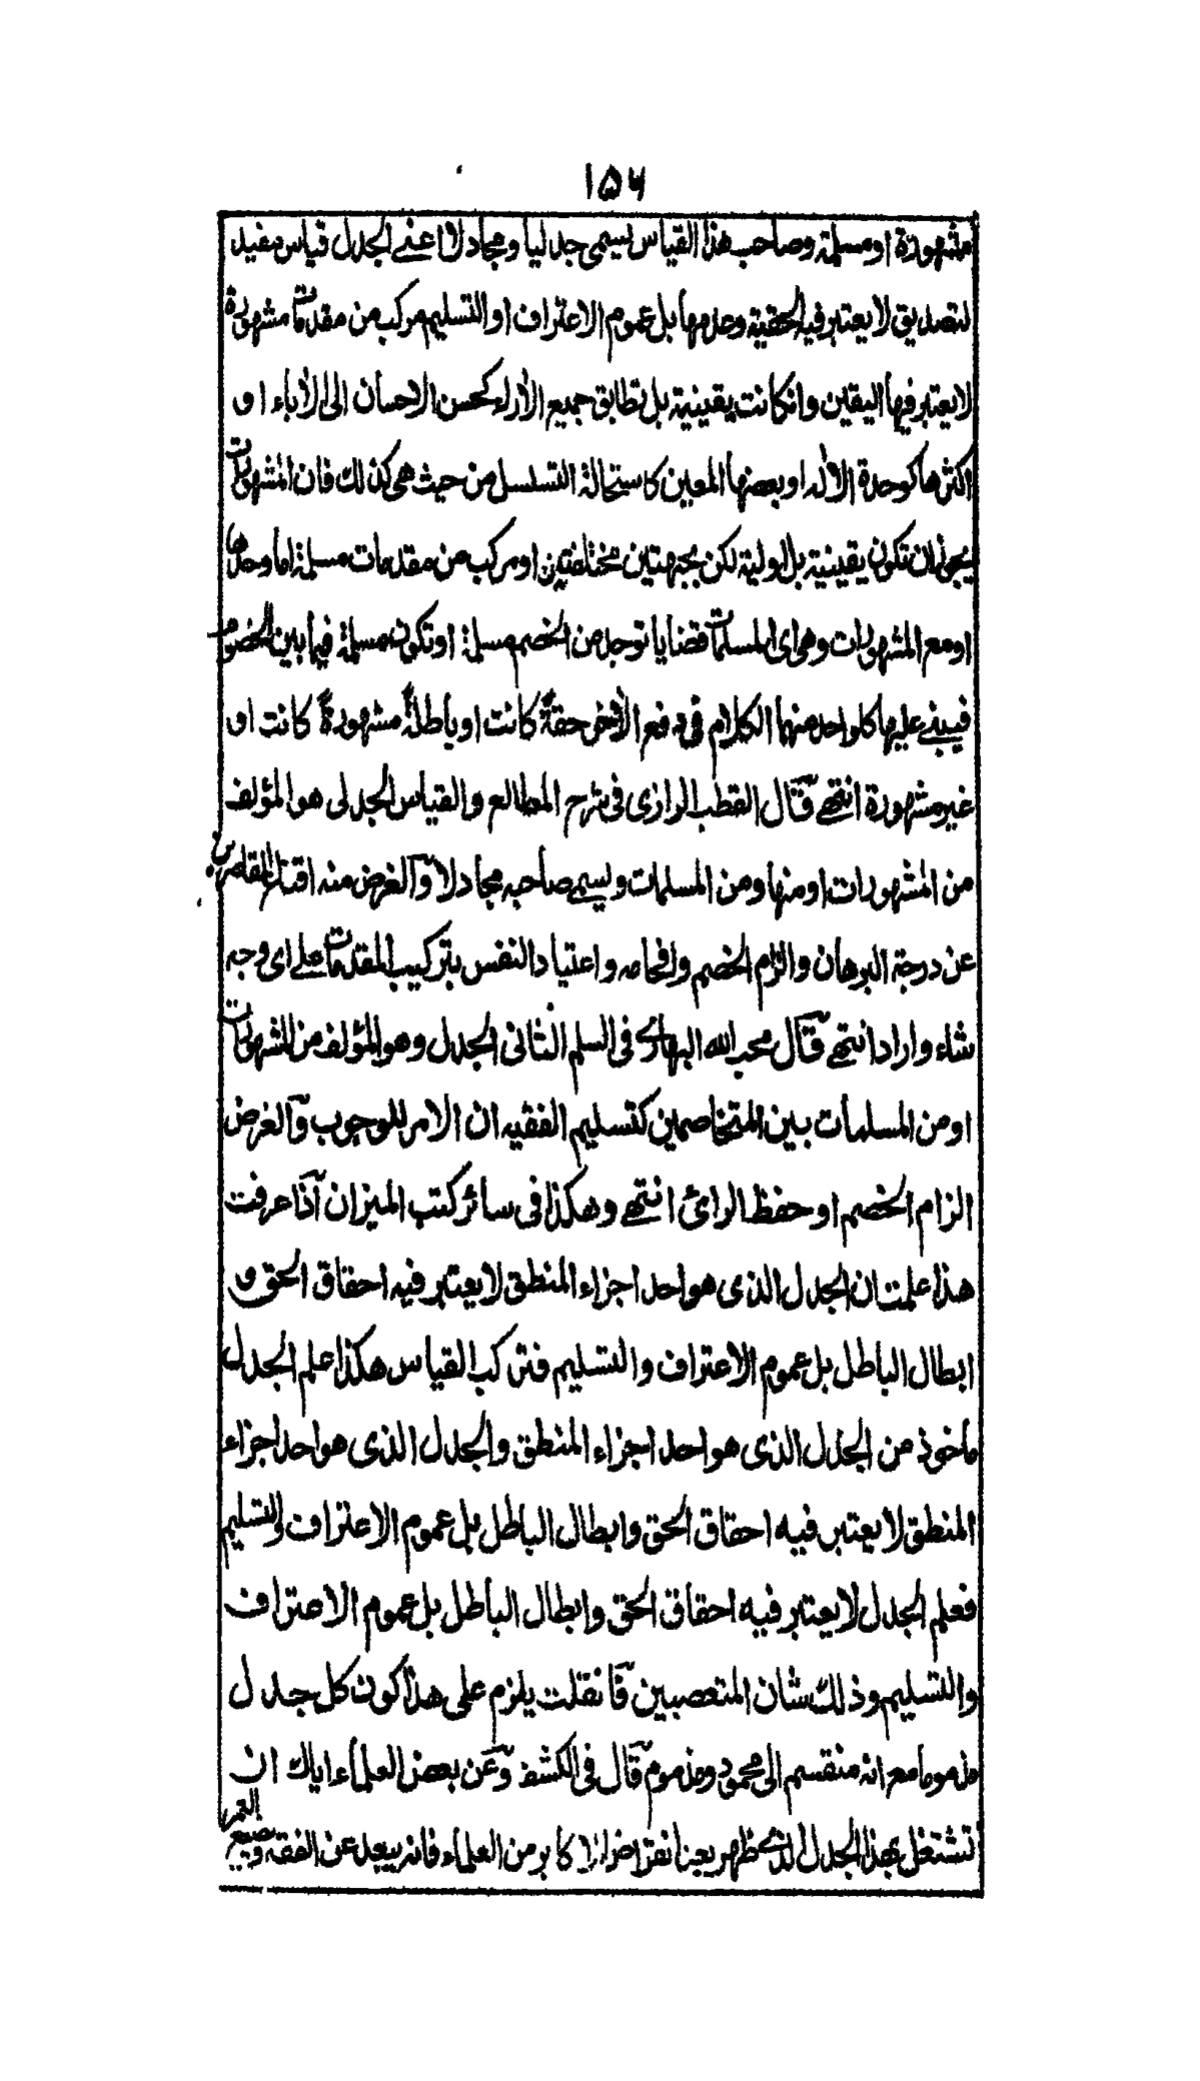 ١٥٦
مشهورة او مسلمة وصاحب هذا القياس يسمى جدليا ومجادلا اعنے الجدل قياس مفيد
لتصديق لا يعتبر فيه الحقية وعدمها بل عموم الاعتراف او التسليم مركب من مقدمات مشهورة
لا يعتبر فيها اليقين وانكانت يقينية بل تطابق جميع الأراء كحسن الاحسان الى الأباء او
اكثرها كوحدة الالٰه او بعضها المعين كاستحالة التسلسل من حيث هى كذلك فان المشهورات
يجوز ان تكون يقينية بل اولية لكن بجهتين مختلفتين او مركب من مقدمات مسلمة اما وحدها
او مع المشهورات وهى اى المسلمات قضايا توجد من الخصم مسلمة او تكون مسلمة فيما بين الخصوم
فيبنے عليها كلواحد منهما الكلام فى دفع الأخر حقةً كانت او باطلةً مشهورةً كانت او
غير مشهورة انتهے وقال القطب الرازى فى شرح المطالع والقياس الجدلى هو المؤلف
من المشهورات او منها ومن المسلمات ويسمے صاحبه مجادلا والغرض منه اقناع القاصرين
عن درجة البرهان والزام الخصم وافحامه واعتياد النفس بتركيب المقدمات علے اى وجه
شاء واراد انتهے وقال محب الله البهارے فى السلم الثانى الجدل وهو المؤلف من المشهورات
او من المسلمات بين المتخاصمين كتسليم الفقيه ان الامر للوجوب والغرض
الزام الخصم او حفظ الرائ انتهے وهكذا فى سائر كتب الميزان اذا عرفت
هذا علمت ان الجدل الذى هو احد اجزاء المنطق لا يعتبر فيه احقاق الحق و
ابطال الباطل بل عموم الاعتراف والتسليم فتركب القياس هكذا علم الجدل
ماخوذ من الجدل الذى هو احد اجزاء المنطق والجدل الذى هو احد اجزاء
المنطق لا يعتبر فيه احقاق الحق وابطال الباطل بل عموم الاعتراف والتسليم
فعلم الجدل لا يعتبر فيه احقاق الحق وابطال الباطل بل عموم الاعتراف
والتسليم وذلك شان المتعصبين فانقلت يلزم على هذا كون كل جدل
مذموما مع انه منقسم الى محمود ومذموم قال فى الكشف وعن بعض العلماء اياك ان
تشتغل بهذا الجدل الذے ظهر بعد انقراض الاكابر من العلماء فانه يبعد عن الفقه ويضيع
العمر